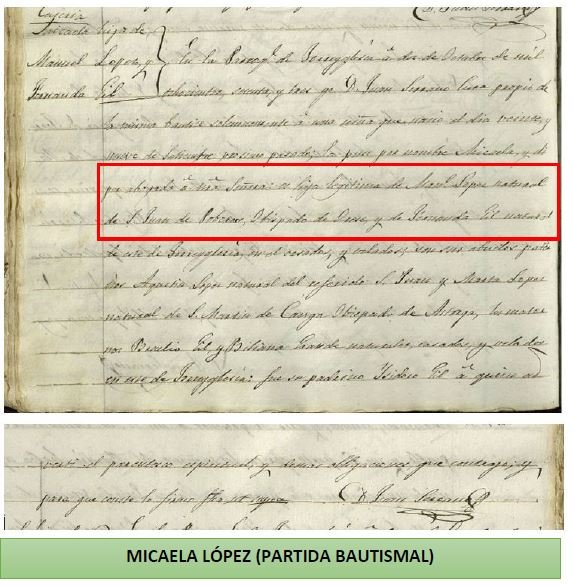 Micaela hija de
Manuel Lopez, y
Fernanda Gil
En la Parroq.l de Torreyglesia á dos de Octubre de mil
ochocientos, y tres yo D. Juan Serrano Cura propio de
la misma bauticé solemnemente á una niña que nació el dia veinte, y
nueve de Setiembre proximo pasado; la puse por nombre Micaela, y di
por abogada á nra Señora: es hija legitima de Man.l Lopez natural
de S. Juan de Obispado de y de Fernanda Gil natural
de esta de Torreyglesia, en el casados, y velados; son sus abuelos
nos Agustin Lopez natural del referido S. Juan y Maria Lopez
natural de S. Martin de Obispado de Astorga, los mater
nos Basilio Gil, y Bibiana Grande naturales, casados, y velados
en este de Torreyglesia: fue su padrino Isidoro Gil á quien ad
verti el parentesco espiritual, y demas obligaciones que contrajo; y
para que conste lo firmo fha ut supra
D. Juan Serrano
MICAELA LÓPEZ (PARTIDA BAUTISMAL)